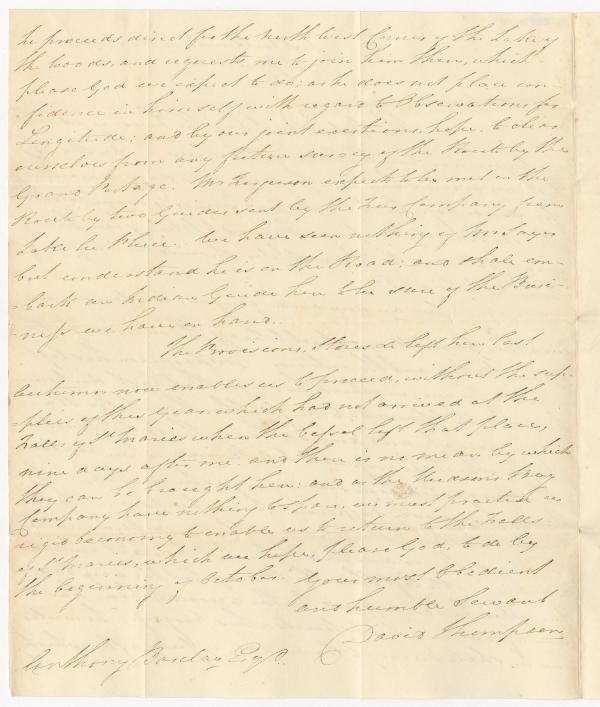 he proceeds direct for the north west Corner of the Lake of
the Woods, and requests me to join him there, which
please God we expect to do; as he does not place con
-fidence in himself with regard to Observations for
Longitude; and by our joint exertions, hope to clear
ourselves from any future survey of the Route by the
Grand Portage. Mr Ferguson expects to be met on the
Route by two Guides sent by the Fur Company from
Lake la Pluie. We have seen nothing of
but understand he is on the Road: and shall em-
-bark an Indian Guide here to be sure of the Busi-
-ness we have on hand.
The Provisions, Stores &c left here last
Autumn now enables us to proceed, without the sup-
-plies of this Year, which had not arrived at the
Falls of St Maries when the Vessel left that place,
nine days after me. and there is no mean by which
they can be brought here: and as the Hudsons Bay
Company have nothing to spare, we must practice a
rigid oeconomy to enable us to return to the Falls
of St Maries, which we hope, please God, to do by
the beginning of October. Your most Obedient
and humble Servant
David Thompson
Anthony Barclay Esqr.